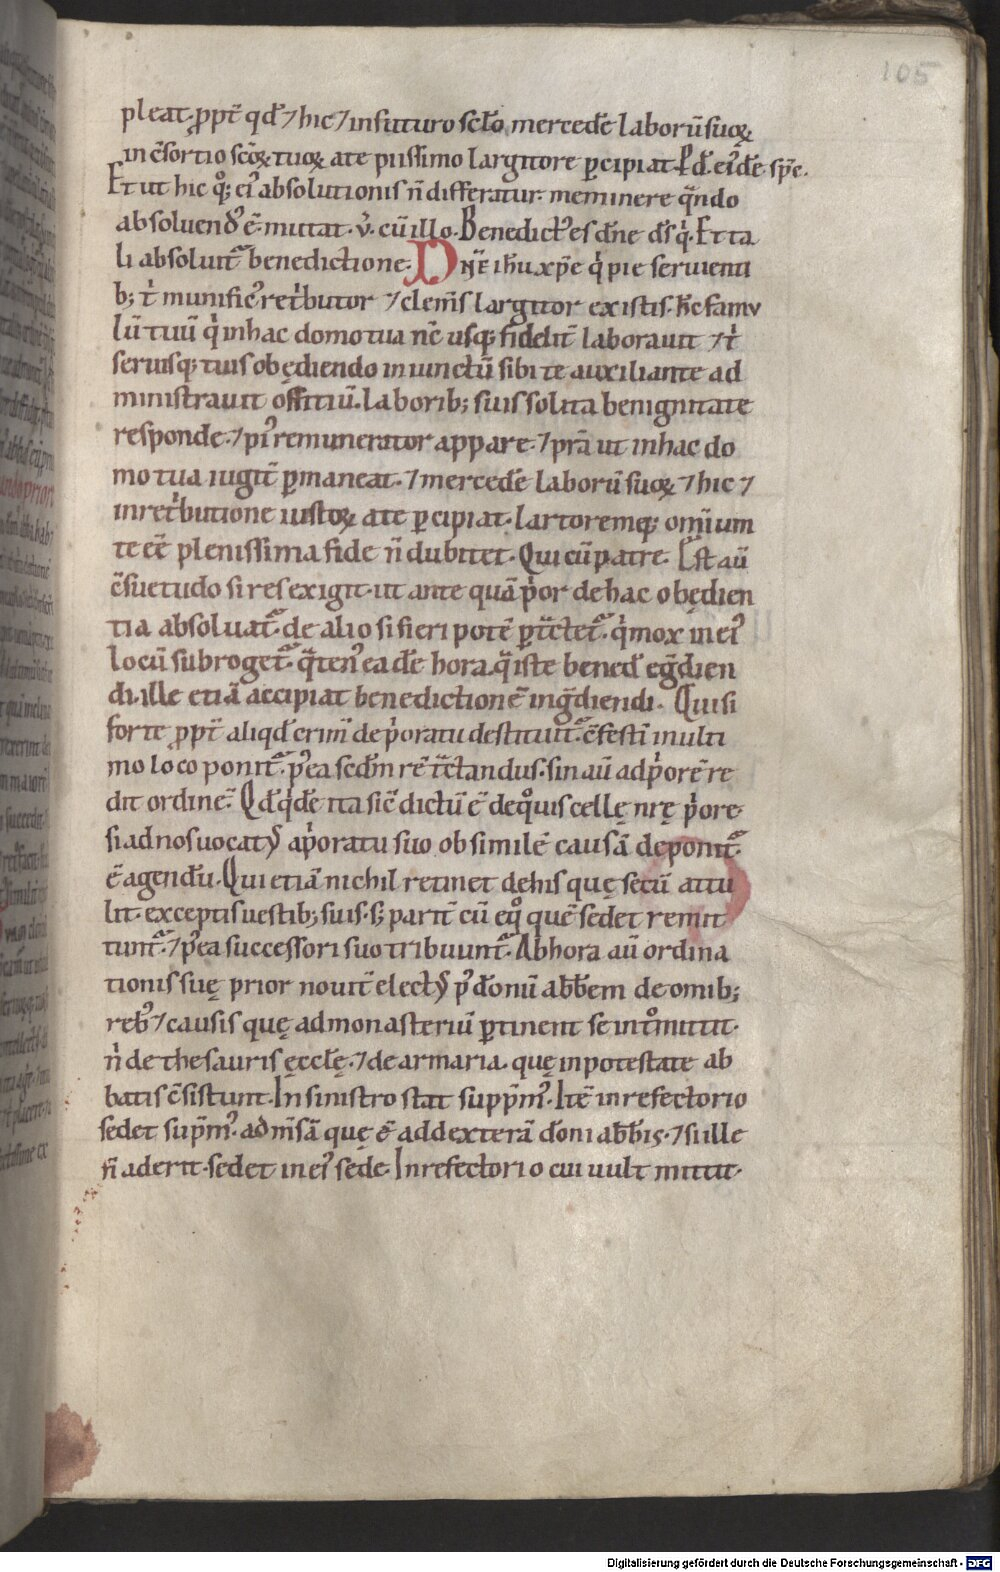 105
pleat. ꝓpt̄ qđ ⁊ hic ⁊ in futuro scło mercedē laborū suoꝝ
in c̄sortio scōꝝ tuoꝝ a te piissimo largitore ꝑcipiat. P. d. ei'dē. spc̄.
Et ut hic qͦꝫ ei' absolutionis n̄ differatur. meminere qͣndo
absoluend' ē. mittat. v̓. cū illo. Benedict' es dn̄e ds̄ qͥ. Et ta
li absoluit̄ benedictione. Dn̄E ih̄u xp̄e qͥ pie seruienti
bꝫ tͥ munific' retͥbutor ⁊ clem̄s largitor existis. h̄c famu
lū tuū qͥ in hac domo tua nc̄ usqꝫ fidelit̄ laborauit ⁊ tͥ
seruisqꝫ tuis obędiendo iniunctū sibi te auxiliante ad
ministrauit offitiū. laboribꝫ suis solita benignitate
responde. ⁊ pi' remunerator appare. ⁊ p̄ra ut in hac do
mo tua iugit̄ ꝑmaneat. ⁊ mercedē laborū suoꝝ ⁊ hic ⁊
in retͥbutione iustoꝝ a te ꝑcipiat. lartoremqꝫ om̄ium
te eē plenissima fide n̄ dubitet. Qui cū patre. Est aū
c̄suetudo si res exigit. ut ante quā pͥor de hac obędien
tia absoluat̄. de alio si fieri potē ꝑtc̄tet̄. qͥ mox in ei'
locū subroget̄. qͣten' eadē hora. qͣ iste bened̄ egͣdien
di. ille etiā accipiat benedictionē ingͣdiendi. Qui si
forte ꝓpt̄ aliqđ crim̄ de pͥoratu destituit̄. c̄festī in ulti
mo loco ponit̄. p'ea scđm rē tc̄tandus. sin aū ad pͥorē re
dit ordinē. Qđ qͥdē ita sic̄ dictū ē de qͦuis cellę nr̄ę pͥore.
si ad nos uocat' a pͥoratu suo ob similē causā deponit̄.
ē agendū. Qui etiā nichil retinet de his quę secū attu
lit. exceptis uestibꝫ suis. sꝫ parit̄ cū eqͦ quē sedet remit
tunt̄. ⁊ p'ea successori suo tribuunt̄. Ab hora aū ordina
tionis suę prior nouit̄ elect' p' dōnū abb̄em de omībꝫ
reb' ⁊ causis quę ad monasteriū ꝑtinent se intͦmittit.
n̄ de thesauris ęccłę. ⁊ de armaria. quę in potestate ab
batis c̄sistunt. In sinistro stat supp̄m'. Itē in refectorio
sedet sup̄m'. ad m̄sā quę ē ad dexterā dōni abb̄is. ⁊ si ille
n̄ aderit. sedet in ei' sede. In refectorio cui uult mittit.
Digitalisierung gefördert durch die Deutsche Forschungsgemeinschaft - DFG